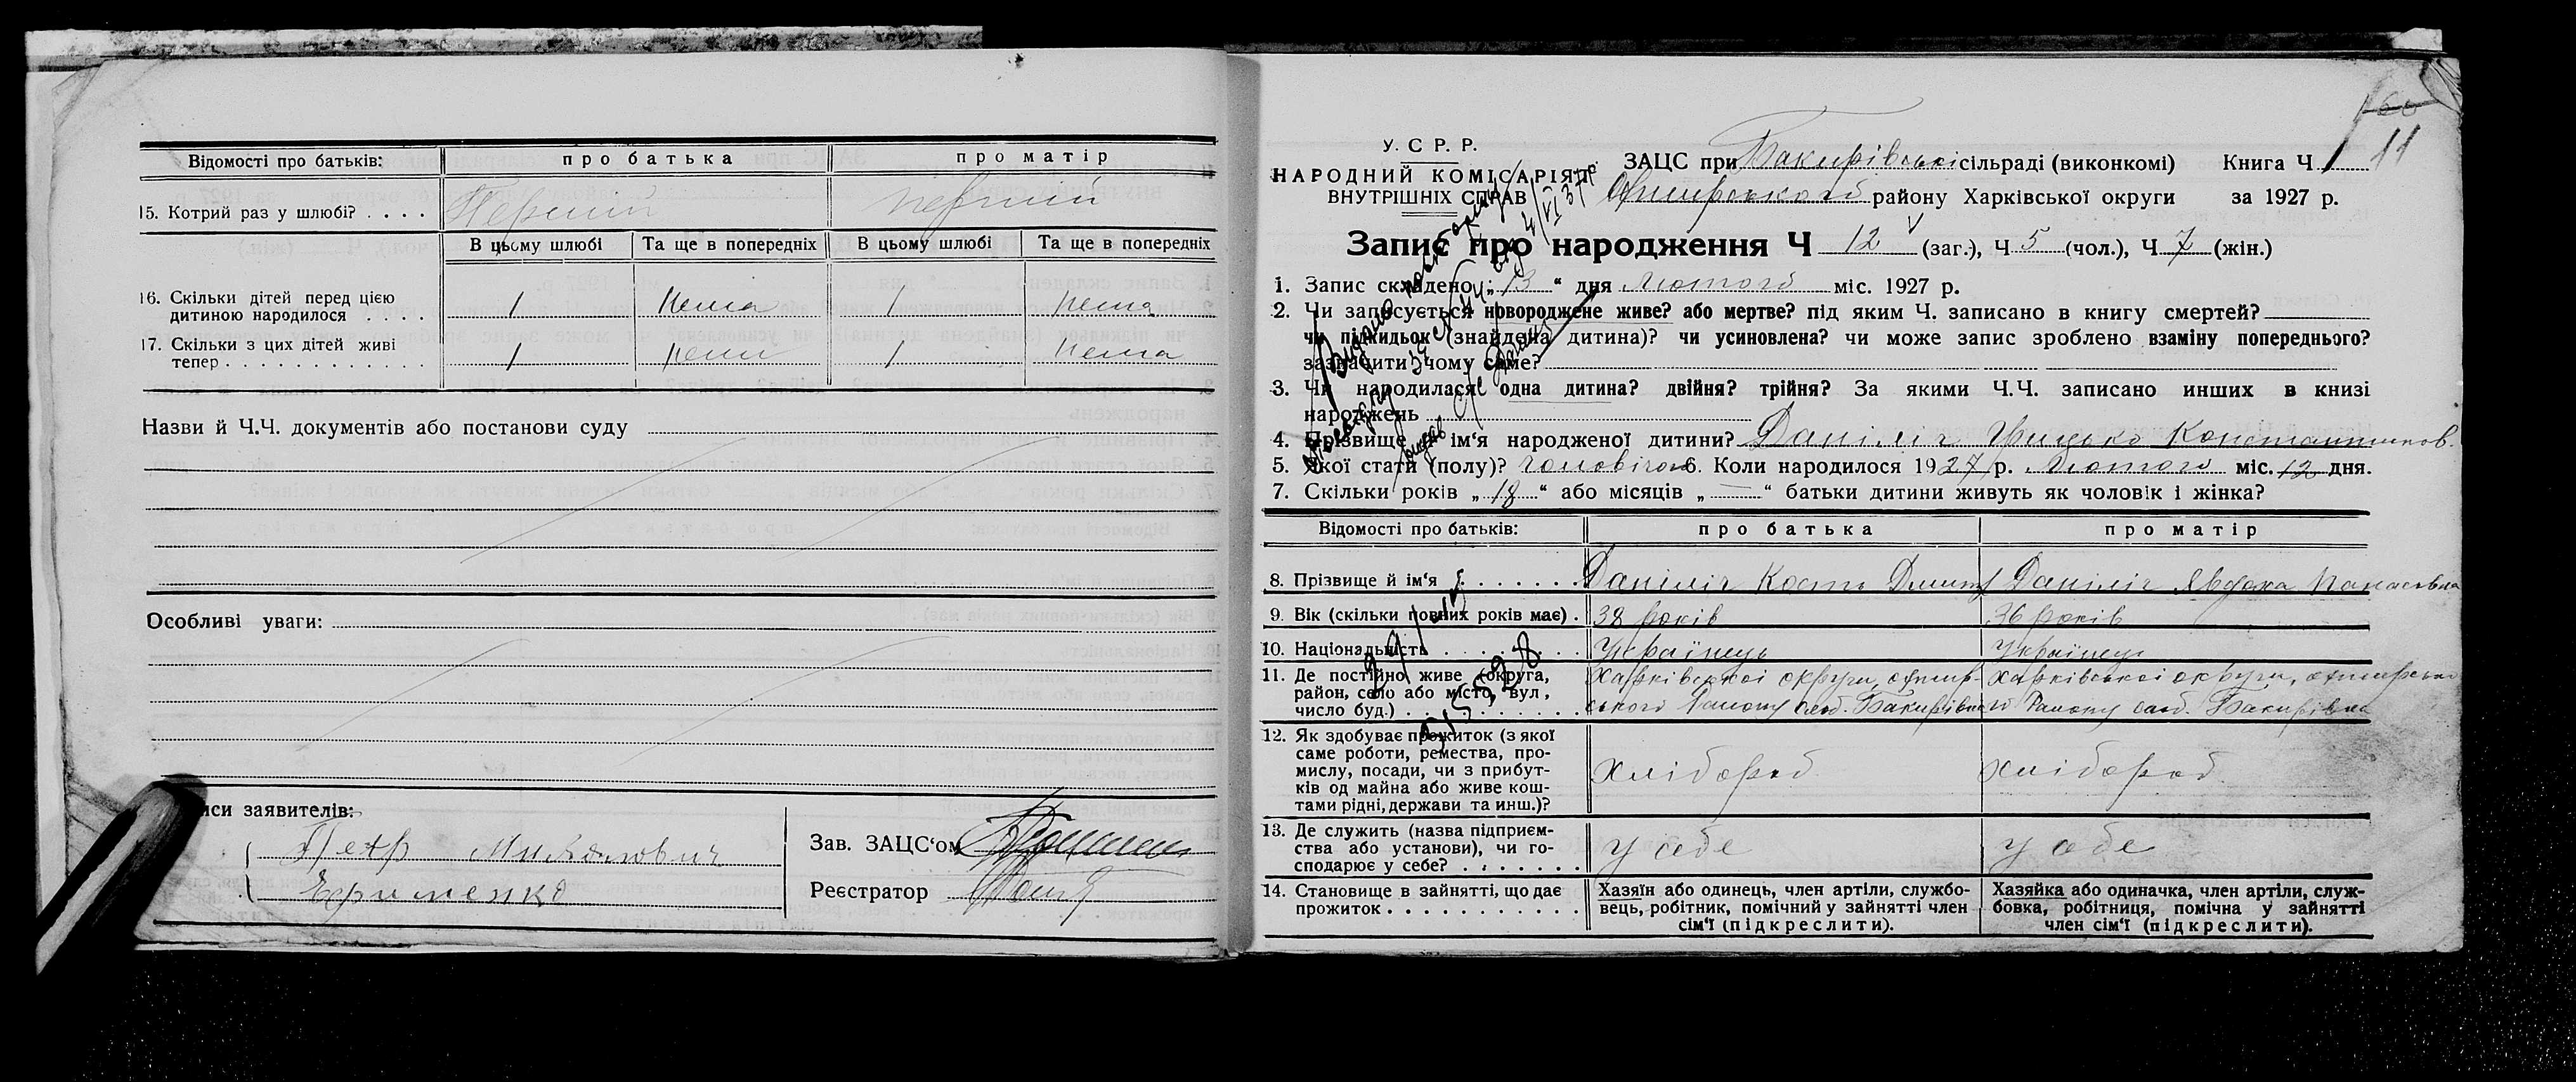 Відомості про батьків: про батька про матір
15. Котрий раз у шлюбі? . . . . Перший перший
В цьому шлюбі Та ще в попередніх В цьому шлюбі Та ще в попередніх
16. Скільки дітей перед цією
дитиною народилося . . . . 1 нема 1 нема
17. Скільки з цих дітей живі
тепер . . . . . . . . . . . . 1 нема 1 нема
Назви й Ч.Ч. документів або постанови суду
Особливі уваги:
иси заявителів:
Петр Миколович
Єфименко
Зав. ЗАЦС‘ом
Реєстратор
11
У. С. Р. Р.
НАРОДНИЙ КОМІСАРІЯТ
ВНУТРІШНІХ СПРАВ
ЗАЦС при Бакирівській сільраді (виконкомі) Книга Ч 1
району Харківської округи за 1927 р.
Запис про народження Ч 12 (заг.), Ч 5 (чол.), Ч 7 (жін.)
1. Запис складено „ 13 “ дня Лютого міс. 1927 р.
2. Чи записується новороджене живе? або мертве? під яким Ч. записано в книгу смертей?
чи підкидьок (знайдена дитина)? чи усиновлена? чи може запис зроблено взаміну попереднього?
зазначити чому саме?
3. Чи народилася одна дитина? двійня? трійня? За якими Ч.Ч. записано инших в книзі
народжень
4. Прізвище й ім‘я народженої дитини? Даніліч Грицько Константинов.
5. Якої стати (полу)? 6. Коли народилося 1927 р. Лютого міс. 12 дня.
7. Скільки років „ 18 “ або місяців „ — “ батьки дитини живуть як чоловік і жінка?
Відомості про батьків: про батька про матір
8. Прізвище й ім‘я . . . . . . . Даніліч Кость Дмит Даніліч Явдоха Панасовна
9. Вік (скільки повних років має) . 38 років 36 років
10. Національність . . . . . . . . Українець Українець
11. Де постійно живе (округа, Харківської округи, Харківської округи,
район, село або місто, вул, Району слоб. Бакирівка Району слоб. Бакирівка
число буд.) . . . . . . . . . .
12. Як здобуває прожиток (з якої
саме роботи, ремества, про-
мислу, посади, чи з прибут- хлібороб хлібороб
ків од майна або живе кош-
тами рідні, держави та инш.)?
13. Де служить (назва підприєм-
ства або установи), чи го- у себе у себе
сподарює у себе? . . . . . . .
14. Становище в зайнятті, що дає Хазяїн або одинець, член артіли, службо- Хазяйка або одиначка, член артіли, служ-
прожиток . . . . . . . . . . . вець, робітник, помічний у зайнятті член бовка, робітниця, помічна у зайнятті
сім‘ї (підкреслити). член сім‘ї (підкреслити).